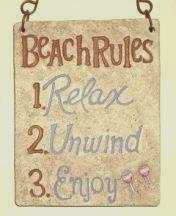 BEACH RULES
1. Relax
2. Unwind
3. Enjoy